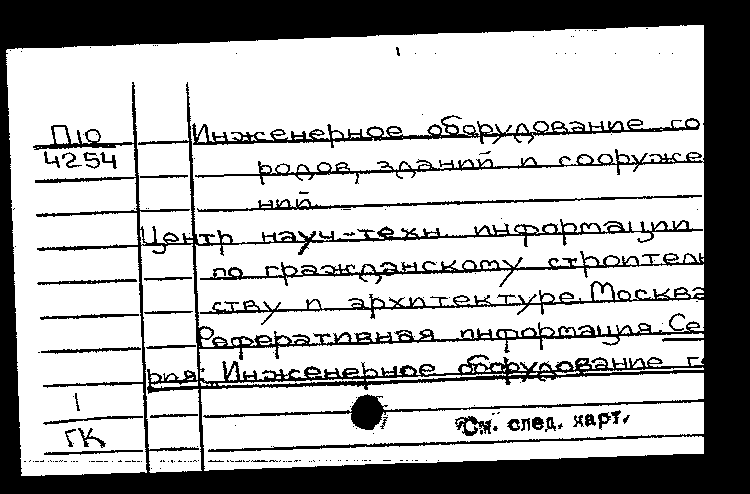 П10
4254
Инженерное оборудование го
родов, зданий и сооруже
ний.
Центр науч.-техн. информации
по гражданскому строитель
ству и архитектуре. Москва
Реферативная информация. Се
рия: Инженерное оборудование го
1
ГК
См. след. карт.